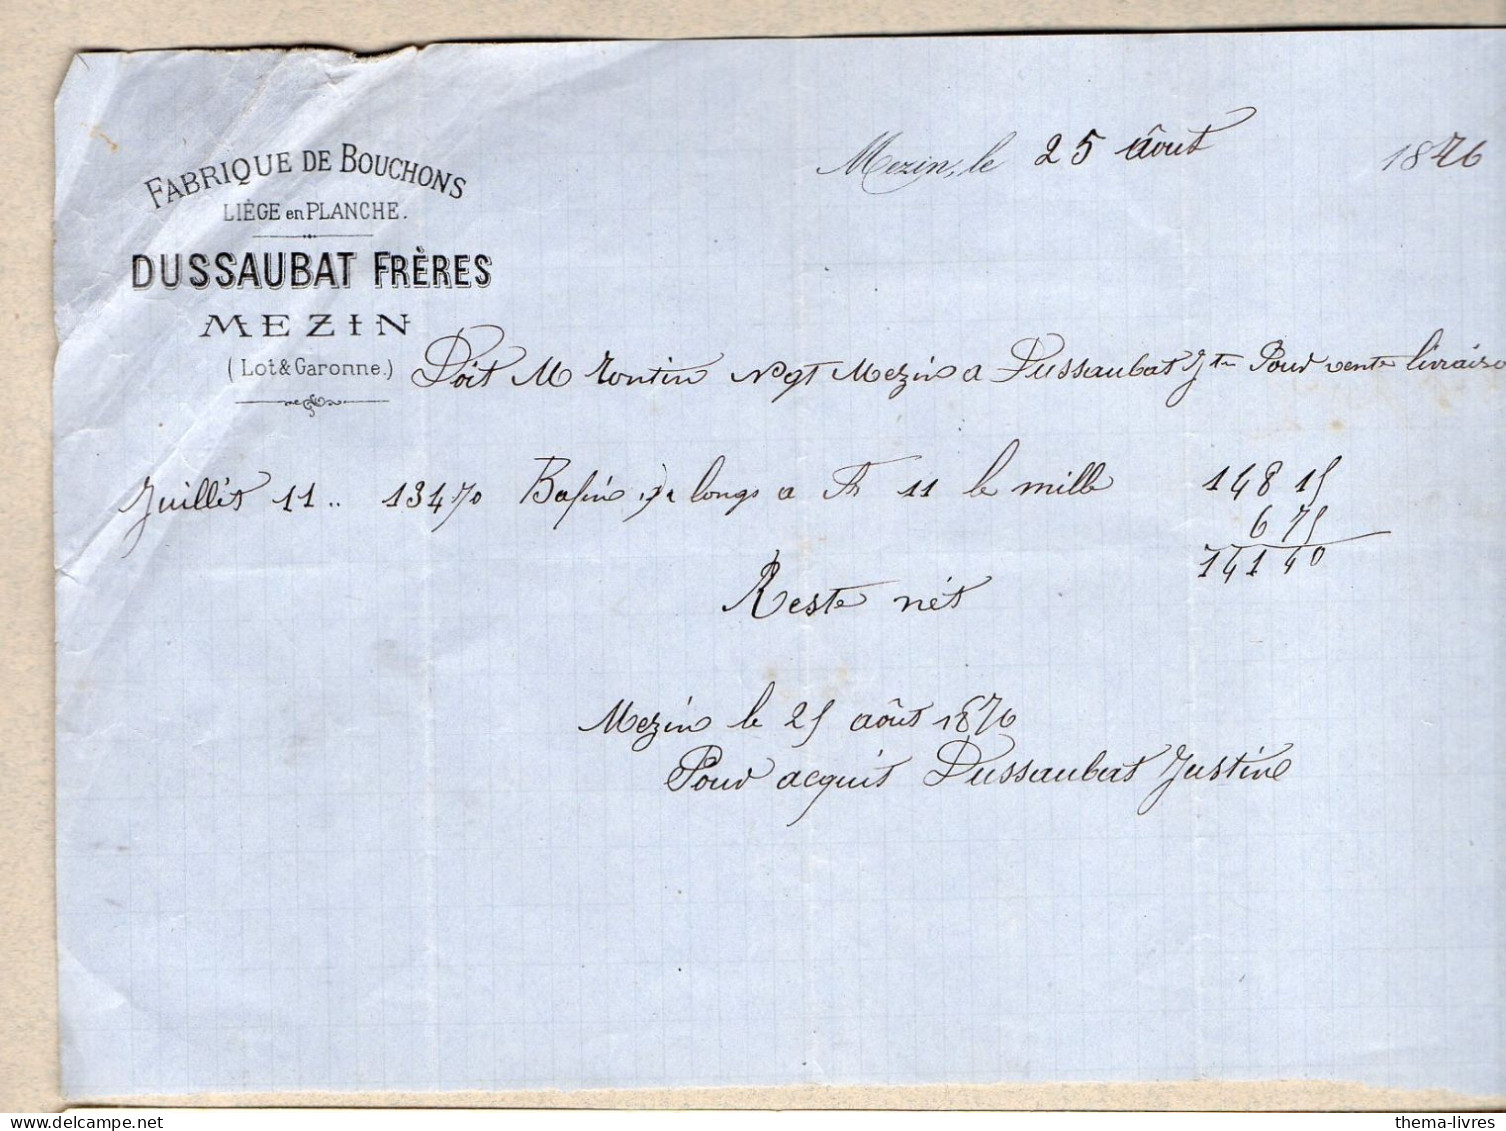 FABRIQUE DE BOUCHONS
LIÈGE en PLANCHE.
DUSSAUBAT FRÈRES
MEZIN
(Lot & Garonne.)
Mezin, le 25 âout 1876
Doit M Tontin Ngt Mezin a Dussaubat Jte Pour vente livraiso
Juillet 11 .. 13470 longs a Fr 11 le mille 148 15
6 75
141 40
Reste nét
Mezin le 25 aôut 1876
Pour acquit Dussaubat Justine
thema-livres